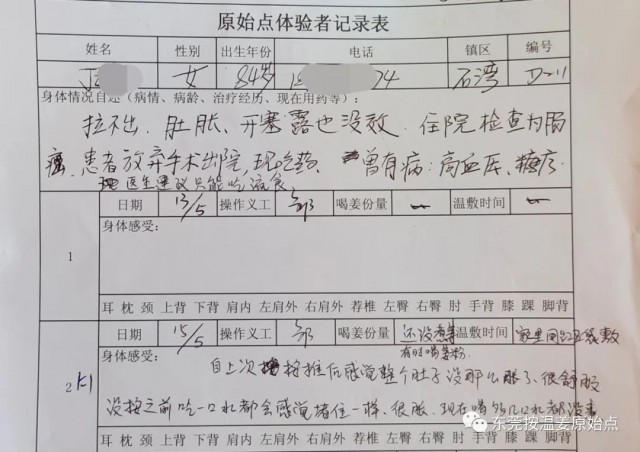 原始点体验者记录表
姓名 性别 出生年份 电话 镇区 编号
女 84岁 74 石湾
身体情况自述（病情、病龄、治疗经历、现在用药等）：
拉不出、肚胀、开塞露也没效、住院检查为肠
癌、患者放弃手术出院，现吃药、曾有病：高血压、
医生建议只能吃流食
日期 13/5 操作义工 喝姜份量 温敷时间
1
身体感受：
耳 枕 颈 上背 下背 肩内 左肩外 右肩外 荐椎 左臀 右臀 肘 手背 膝 踝 脚背
日期 15/5 操作义工 喝姜份量 还没煮 温敷时间
有时喝姜粉
2
身体感受：
自上次按推后感觉整个肚子没那么胀了、很舒服
没按之前吃一口水都会感觉堵住一样、很胀、现在喝几口水都没事
耳 枕 颈 上背 下背 肩内 左肩外 右肩外 荐椎 左臀 右臀 肘 手背 膝 踝 脚背
东莞按温姜原始点